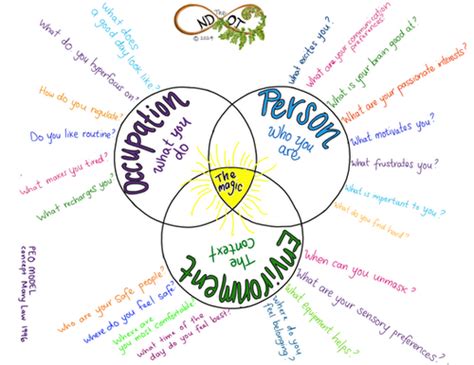 The
ND OT
© 2024
What do you hyperfocus on?
What does
a good day look like?
How do you regulate?
Do you like routine?
What makes you tired?
What recharges you?
Occupation
what you
do
What excites you?
What are your communication
preferences?
What is your brain good at?
What are your passionate interests?
What motivates you?
What frustrates you?
What is important to you?
What do you find hard?
Person
Who you
are
The
magic
Environment
The
Context
When can you unmask?
What are your sensory preferences?
What equipment helps?
Where do
you feel
belonging?
What time of the
day do you feel best?
Where are
you most comfortable?
where do you feel safe?
who are your safe people?
PEO MODEL
concept Mary Law 1996